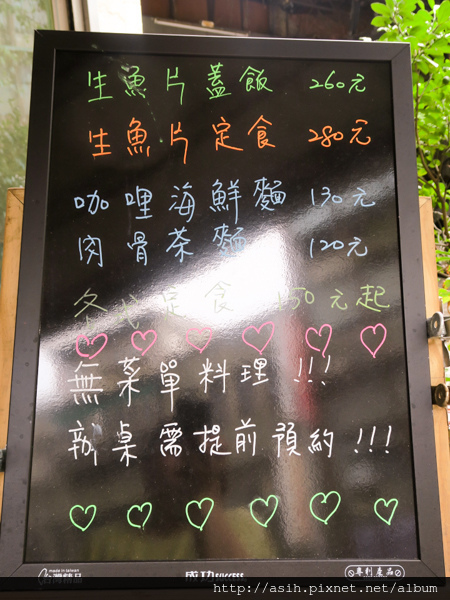 生魚片蓋飯 260元
生魚片定食 280元
咖哩海鮮麵 130元
肉骨茶麵 120元
各式定食 150元起
無菜單料理!!!
辦桌需提前預約!!!
made in taiwan
台灣精品
成功 SUCCESS
專利產品
http://asih.pixnet.net/album